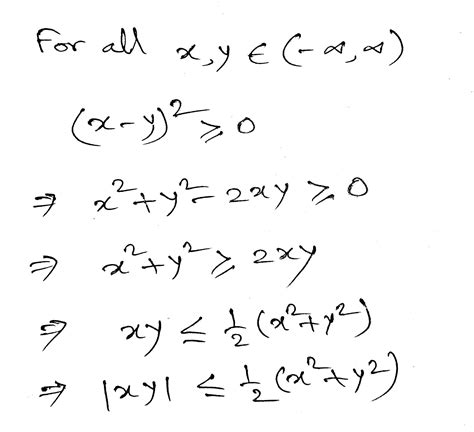 For all x, y ∈ (-∞, ∞)
(x-y)² ≥ 0
⇒ x²+y²-2xy ≥ 0
⇒ x²+y² ≥ 2xy
⇒ xy ≤ 1/2 (x²+y²)
⇒ |xy| ≤ 1/2 (x²+y²)